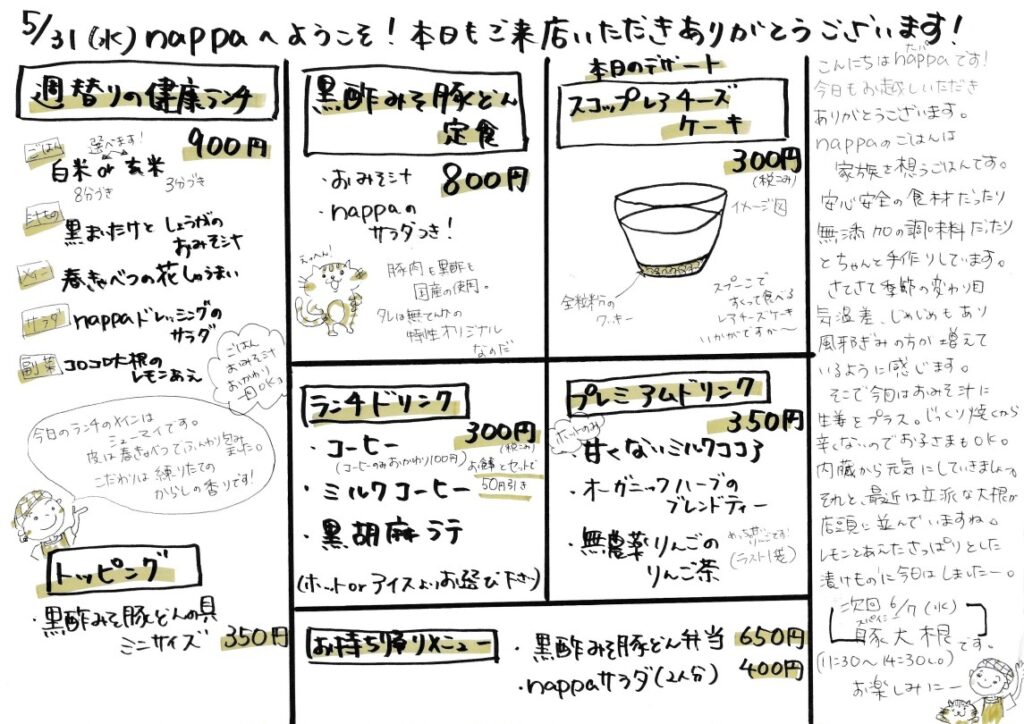 5/31(水)nappaへようこそ!本日もご来店いただきありがとうございます!
週替りの健康ランチ
900円
ごはん
選べます!
白米 or 玄米
8分づき
3分づき
汁もの
黒まいたけとしょうがの
おみそ汁
メイン
春きゃべつの花しゅうまい
サラダ
nappaドレッシングの
サラダ
副菜
コロコロ大根の
レモンあえ
ごはん
おみそ汁
おかわり
一回OK!
今日のランチのメインは
シューマイです。
皮は春きゃべつでふんわり包み
ました。
こだわりは練りたての
からしの香りです!
トッピング
・黒酢みそ豚どんの具
ミニサイズ 350円
黒酢みそ豚どん
定食
・おみそ汁
800円
・nappaの
サラダつき!
えっへん!
豚肉も黒酢も
国産の使用。
タレは無てんかの
特性オリジナル
なのだ
本日のデザート
スコップレアチーズ
ケーキ
300円
(税込み)
イメージ図
全粒粉の
クッキー
スプーンで
すくって食べる
レアチーズケーキ
いかがですか〜
ランチドリンク
・コーヒー
300円
(税込み)
(コーヒーのみおかわり100円)
お食事とセットで
50円引き
・ミルクコーヒー
・黒胡麻ラテ
(ホット or アイスよりお選び下さい)
プレミアムドリンク
350円
ホットのみ
・甘くないミルクココア
・オーガニックハーブの
ブレンドティー
・無農薬りんごの
りんご茶
(ラスト1袋)
お持ち帰りメニュー
・黒酢みそ豚どん弁当 650円
・nappaサラダ(2人分) 400円
こんにちはnappaです!
ナッパ
今日もお越しいただき
ありがとうございます。
nappaのごはんは
家族を想うごはんです。
安心安全の食材だったり
無添加の調味料だったり
とちゃんと手作りしています。
さてさて季節の変わり目
気温差、じめじめもあり
風邪ぎみの方が増えて
いるように感じます。
そこで今日はおみそ汁に
生姜をプラス。じっくり焼くから
辛くないのでお子さまもOK。
内臓から元気にしていきましょ〜。
それと、最近は立派な大根が
店頭に並んでいますね。
レモンとあえたさっぱりとした
漬けものに今日はしましたー。
次回 6/7(水)
スパイシー
豚大根です。
(11:30〜14:30L.O)
お楽しみにー